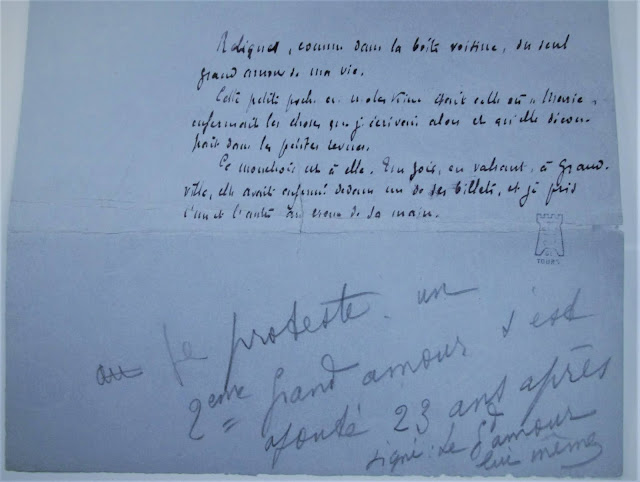 Reliques, comme dans la boîte voisine, du seul
grand amour de ma vie.
Cette petite poche en moleskine était celle où "Marie"
enfermait les choses que j'écrivais alors et qu'elle décou-
pait dans les petites revues.
Ce mouchoir est à elle. Une fois, en valsant, à Grand-
ville, elle avait enfermé dedans un de ses billets, et je pris
l'un et l'autre au creux de sa main.
TOURS
Je proteste. un
2eme Grand amour s'est
ajouté 23 ans après
signé: Le Gd amour
lui même